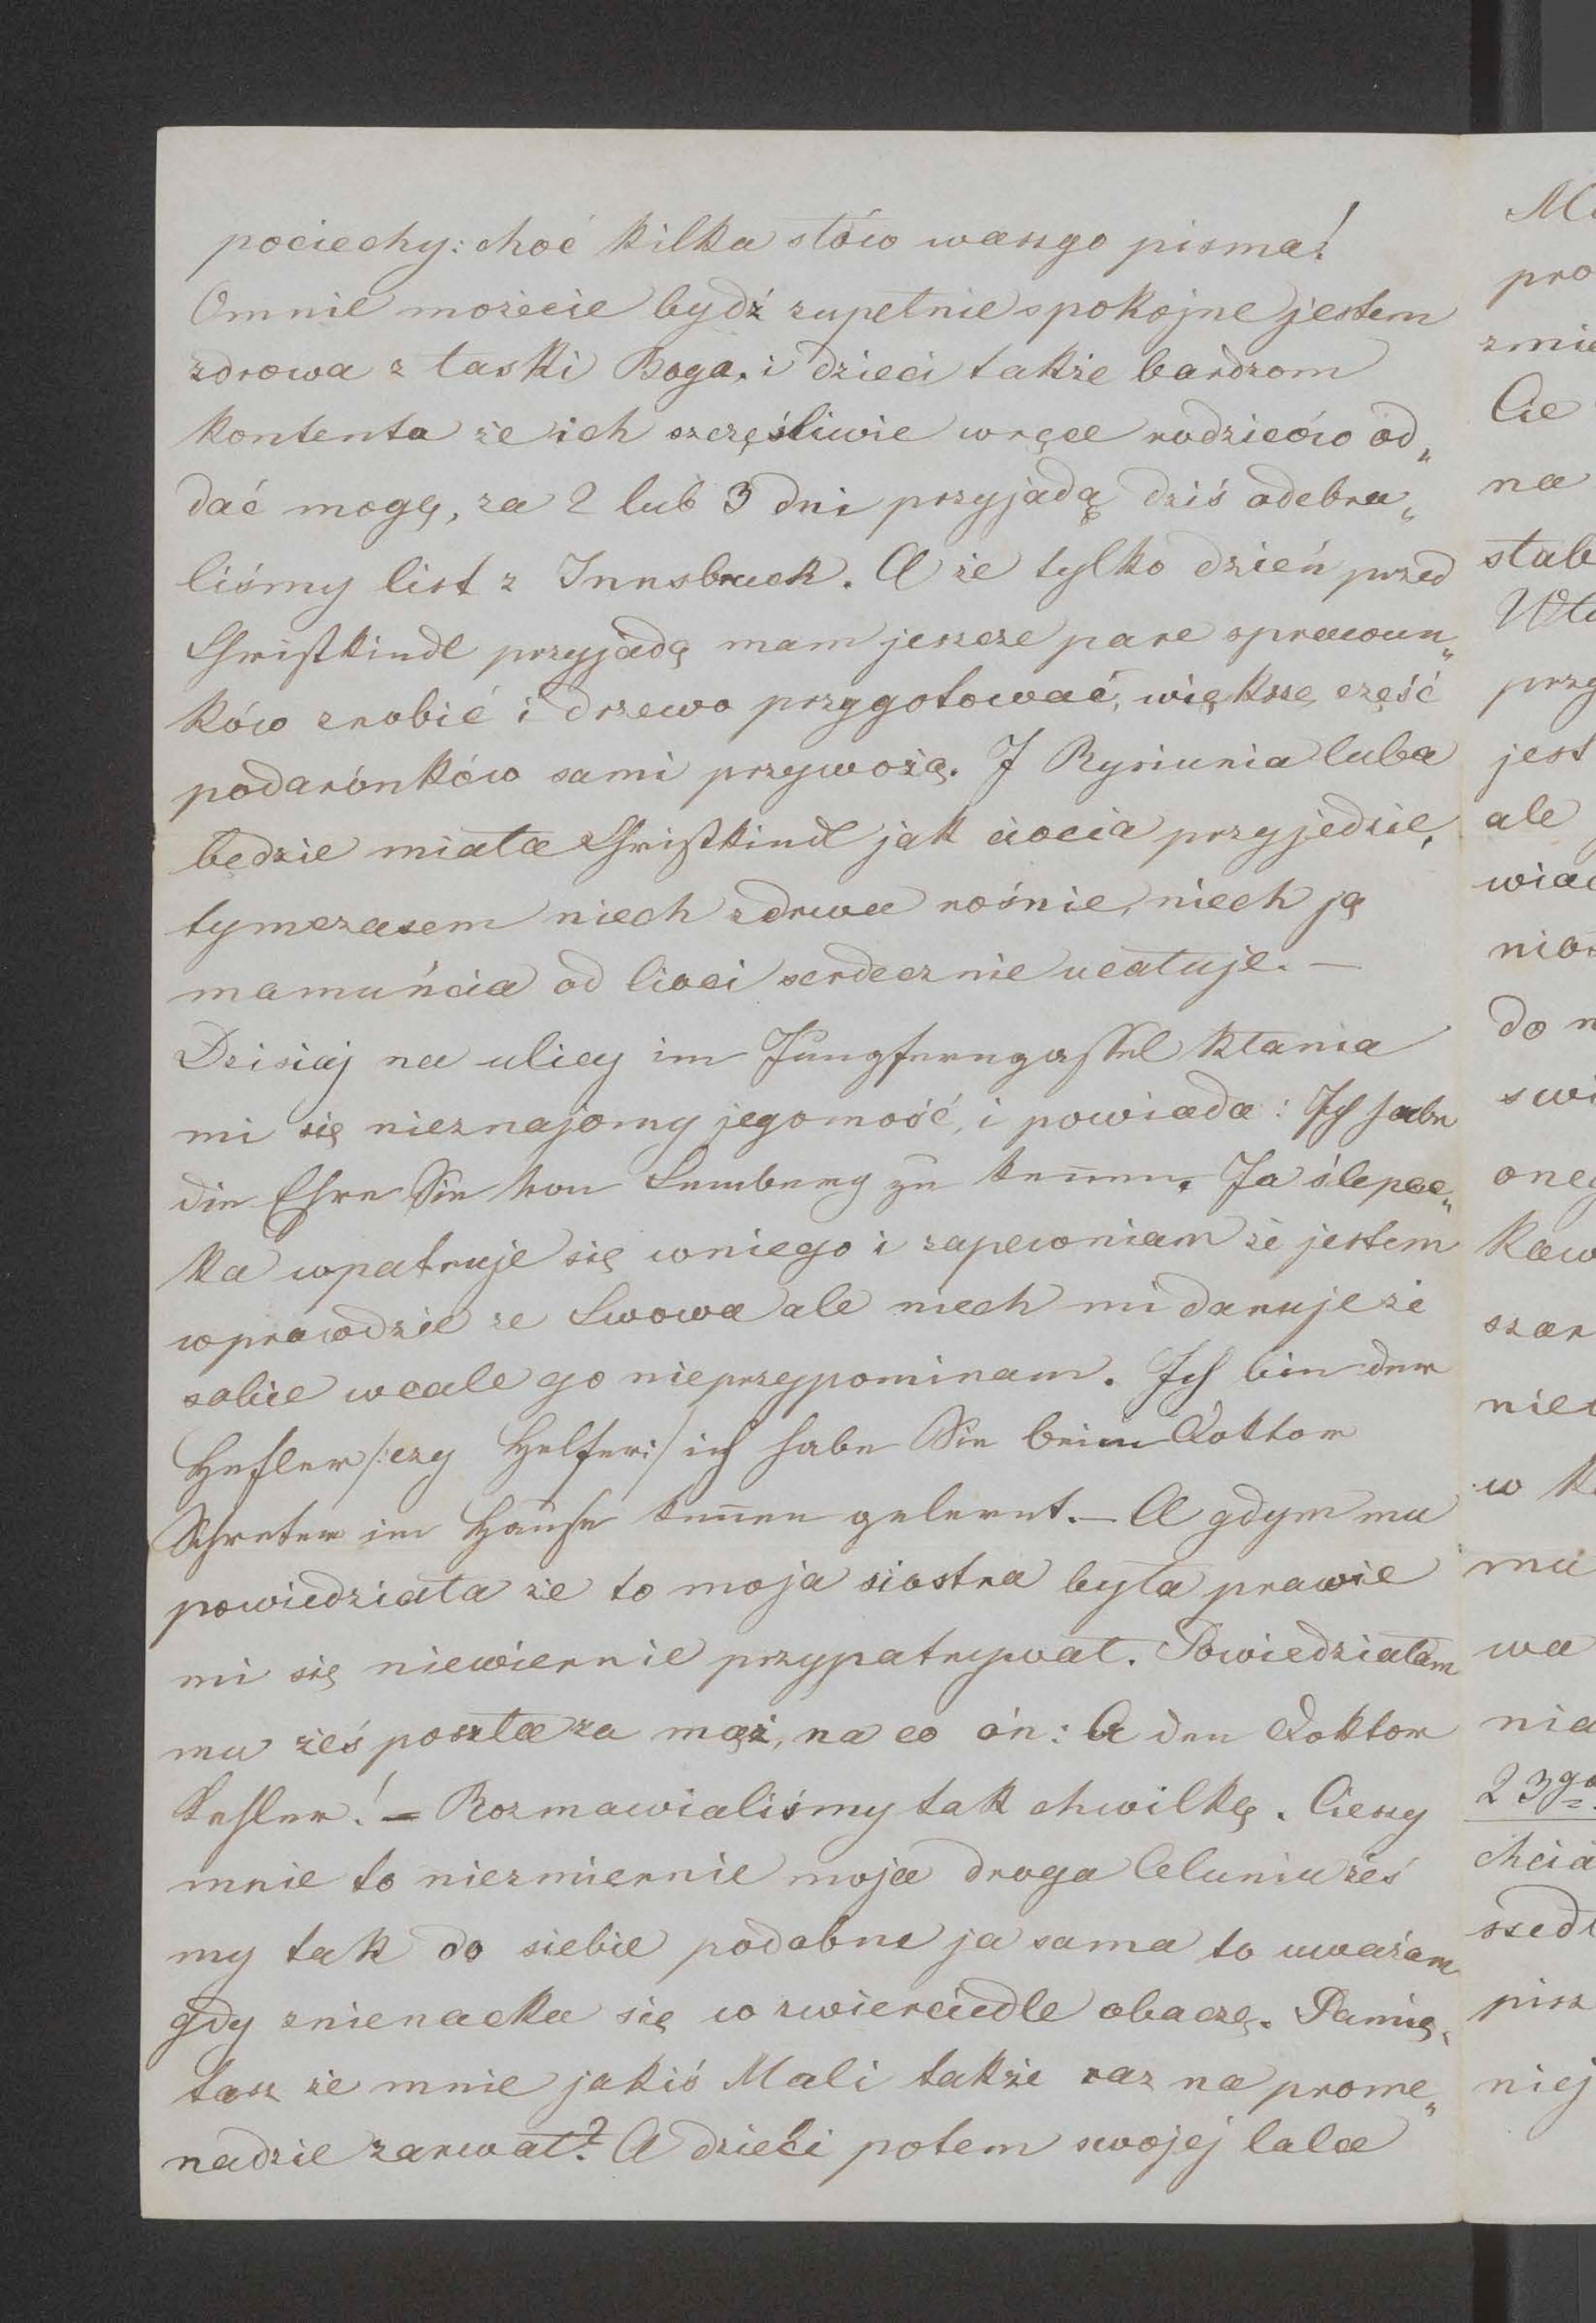 pociechy: choć kilka słów waszgo pisma!
Omnie możecie bydź zupełnie spokojne jestem
zdrowa z łaski Boga. i dzieci także bardzom
kontenta że ich szczęśliwie wręce rodziców od„
dać mogę, za 2 lub 3 dni przyjadą dziś odebra„
liśmy list z Innsbruck. A że tylko dzień przed
Christkindl przyjadą mam jeszcze pare sprawun„
ków zrobić i drzewo przygotować, większe część
podarónków sami przywożą. I Rysiunia luba
będzie miała Christkindl jak ciocia przyjedzie,
tymczasem niech zdrwa rośnie, niech ją
mamuńcia od cioci serdecznie ucałuje. —
Dzisiaj na ulicy im Jungferngassel kłania
mi się nieznajomy jegomość, i powiada: Ich habe
die Ehre Sie von Lemberg zu kennen. Ja ślepac„
ka wpatruje się wniego i zapewniam że jestem
wprawdzie ze Lwowa ale niech mi daruje że
sobie wcale go nieprzypominam. Ich bin der
Hefler /:czy Helfer:/ ich habe Sie beim Doktor
Schreter im Hause kennen gelernt. — A gdym mu
powiedziała że to moja siostra była prawie
mi się niewiernie przypatrywał. Powiedziałam
mu żeś poszła za mąż, na co ón: A den Doktor
Kesler! — Rozmawialiśmy tak chwilkę. Cieszy
mnie to niezmiernie moja droga Celuniu żeś
my tak do siebie podobne ja sama to uważam
gdy znienacka się w zwierciedle obaczę. Pamię„
tasz że mnie jakiś Mali także raz na prome„
nadzie zarwał? A dzieci potem swojej lala
pro
Cie
na
przy
jest
ale
do n
w k
mu
wa
nia
23go
chcia
pisz
niej